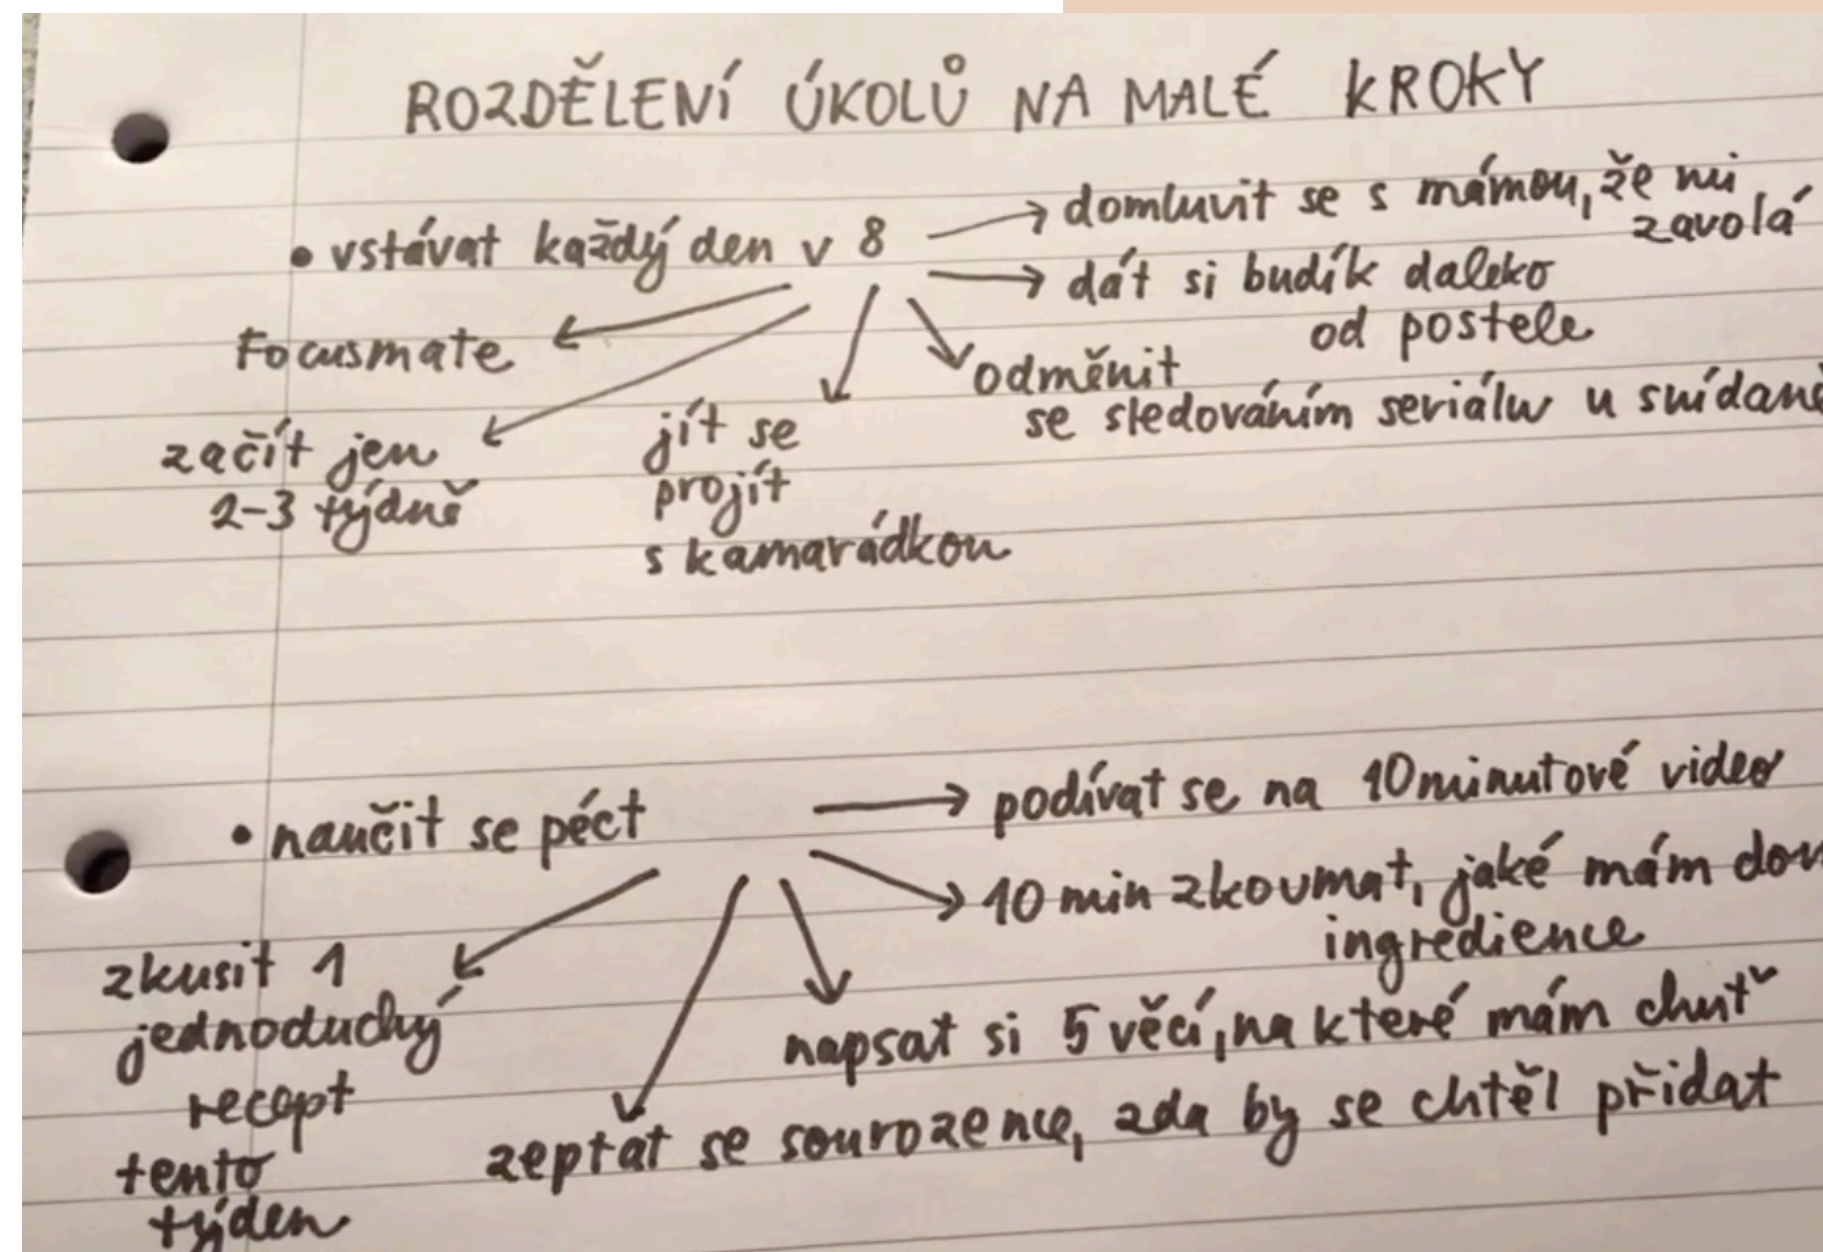 ROZDĚLENÍ ÚKOLŮ NA MALÉ KROKY
• vstávat každý den v 8
domluvit se s mámou, že mi
zavolá
dát si budík daleko
od postele
odměnit
se sledováním seriálu u snídaně
jít se
projít
s kamarádkou
Focusmate
začít jen
2-3 týdně
• naučit se péct
podívat se na 10minutové video
10 min zkoumat, jaké mám
ingredience
napsat si 5 věcí, na které mám chuť
zeptat se sourozence, zda by se chtěl přidat
zkusit 1
jednoduchý
recept
tento
týden